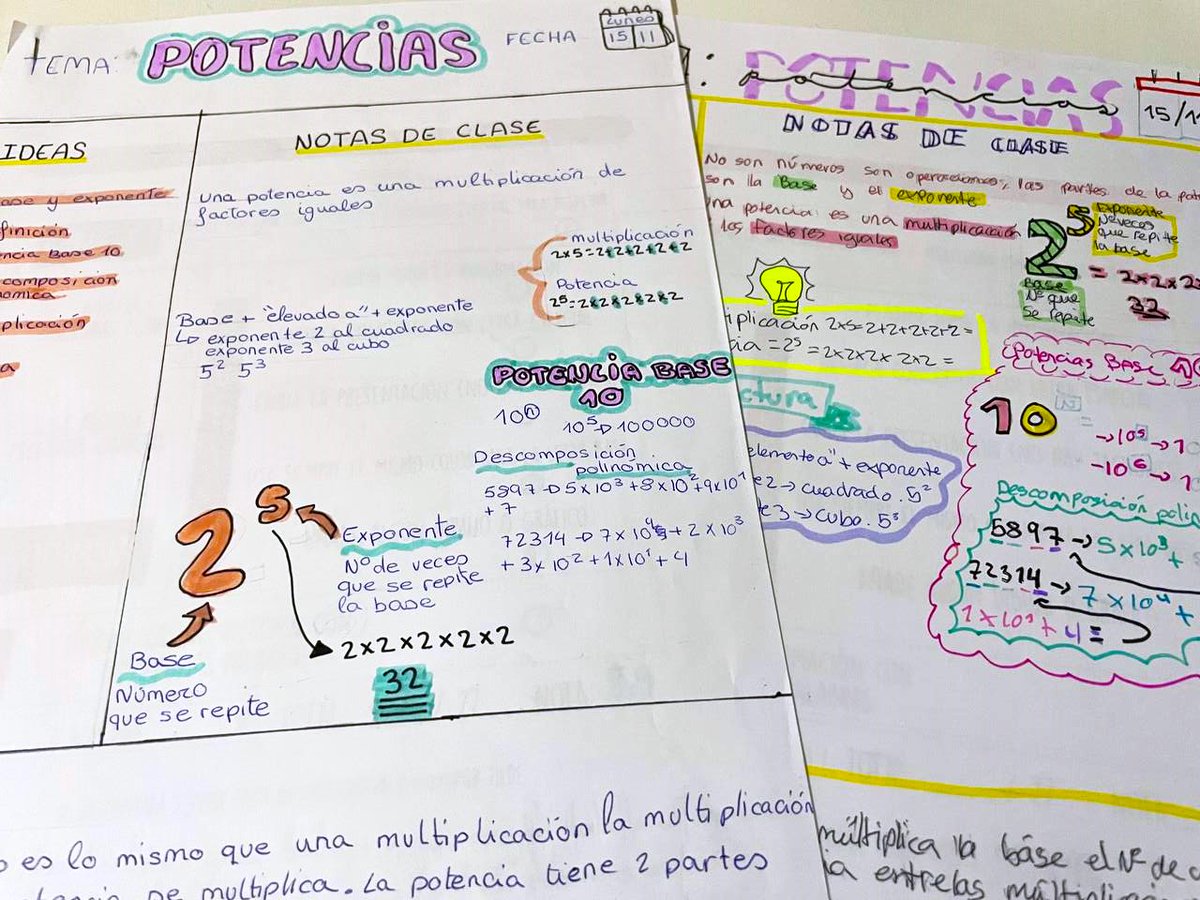 TEMA: POTENCIAS FECHA LUNES
15 11
IDEAS
ase y exponente
finición
ncia Base 10
composición
nómica
plicación
a
NOTAS DE CLASE
Una potencia es una multiplicación de
factores iguales
multiplicación
2x5=2+2+2+2+2
Potencia
2⁵=2x2x2x2x2
Base + "elevado a" + exponente
↳ exponente 2 al cuadrado
exponente 3 al cubo
5² 5³
POTENCIA BASE
10
10ⁿ
10⁵→100000
Descomposición
polinómica
5897→5x10³+8x10²+9x10¹
+7
72314→7x10⁴+2x10³
+3x10²+1x10¹+4
2⁵
Exponente
Nº de veces
que se repite
la base
2x2x2x2x2
32
Base
Número
que se repite
o es lo mismo que una multiplicación la multiplicación
se multiplica. La potencia tiene 2 partes
: POTENCIAS
potencias
15/11
NOTAS DE CLASE
No son números son operaciones, las partes de la po
son lla Base y el exponente
na potencia es una multiplicacción
los factores iguales
2⁵
Exponente
Nº veces
que repite
la base
= 2x2x2x
32
Base
Nº que
se repite
iplicación 2x5=2+2+2+2+2=
ia =2⁵=2x2x2x2x2=
ctura
elemento a" + exponente
e2→cuadrado.5²
te3→cubo.5³
Potencias Base 10
10 N =
→10⁵→10
-10⁶→1
Descomposición polin
5897→5x10³+
72314→7x10⁴+
1x10¹+4=
múltiplica la báse el Nº de
a entrelas